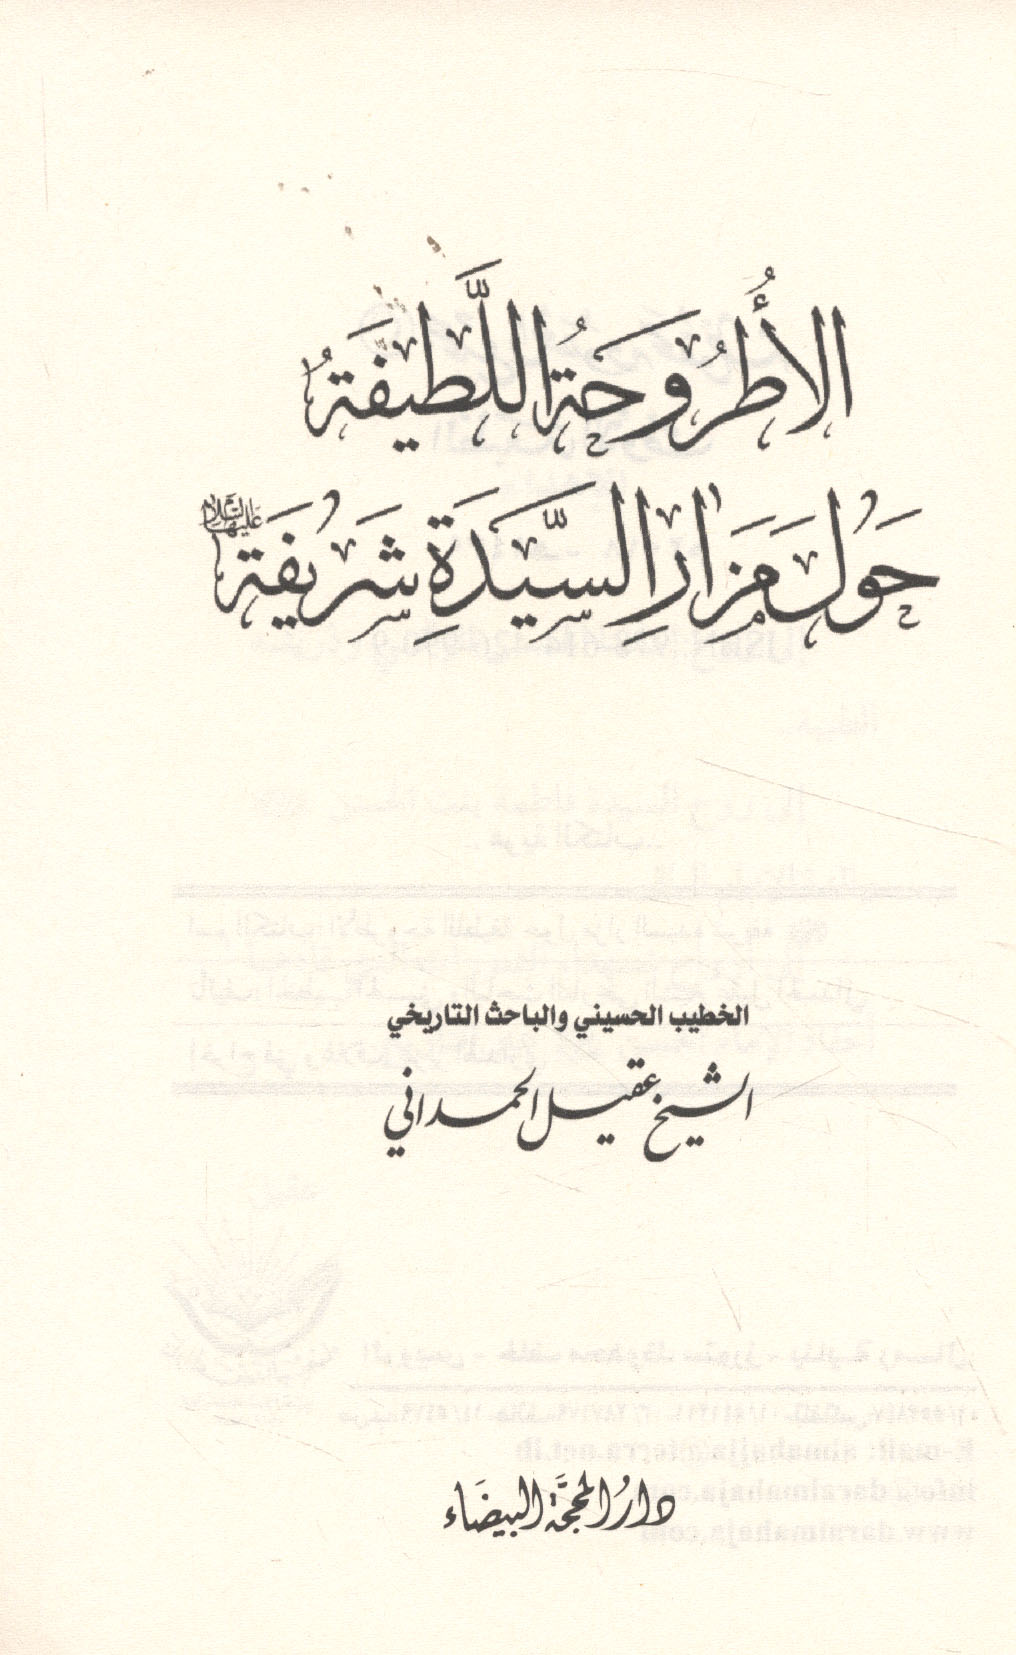 الأُطْرُوحَةُ اللَّطِيفَةُ
حَوْلَ مَزَارِ السَّيِّدَةِ شَرِيفَةَ عليها السلام
الخطيب الحسيني والباحث التاريخي
الشيخ عقيل الحمداني
دَارُ المَحَجَّةِ البَيضَاء